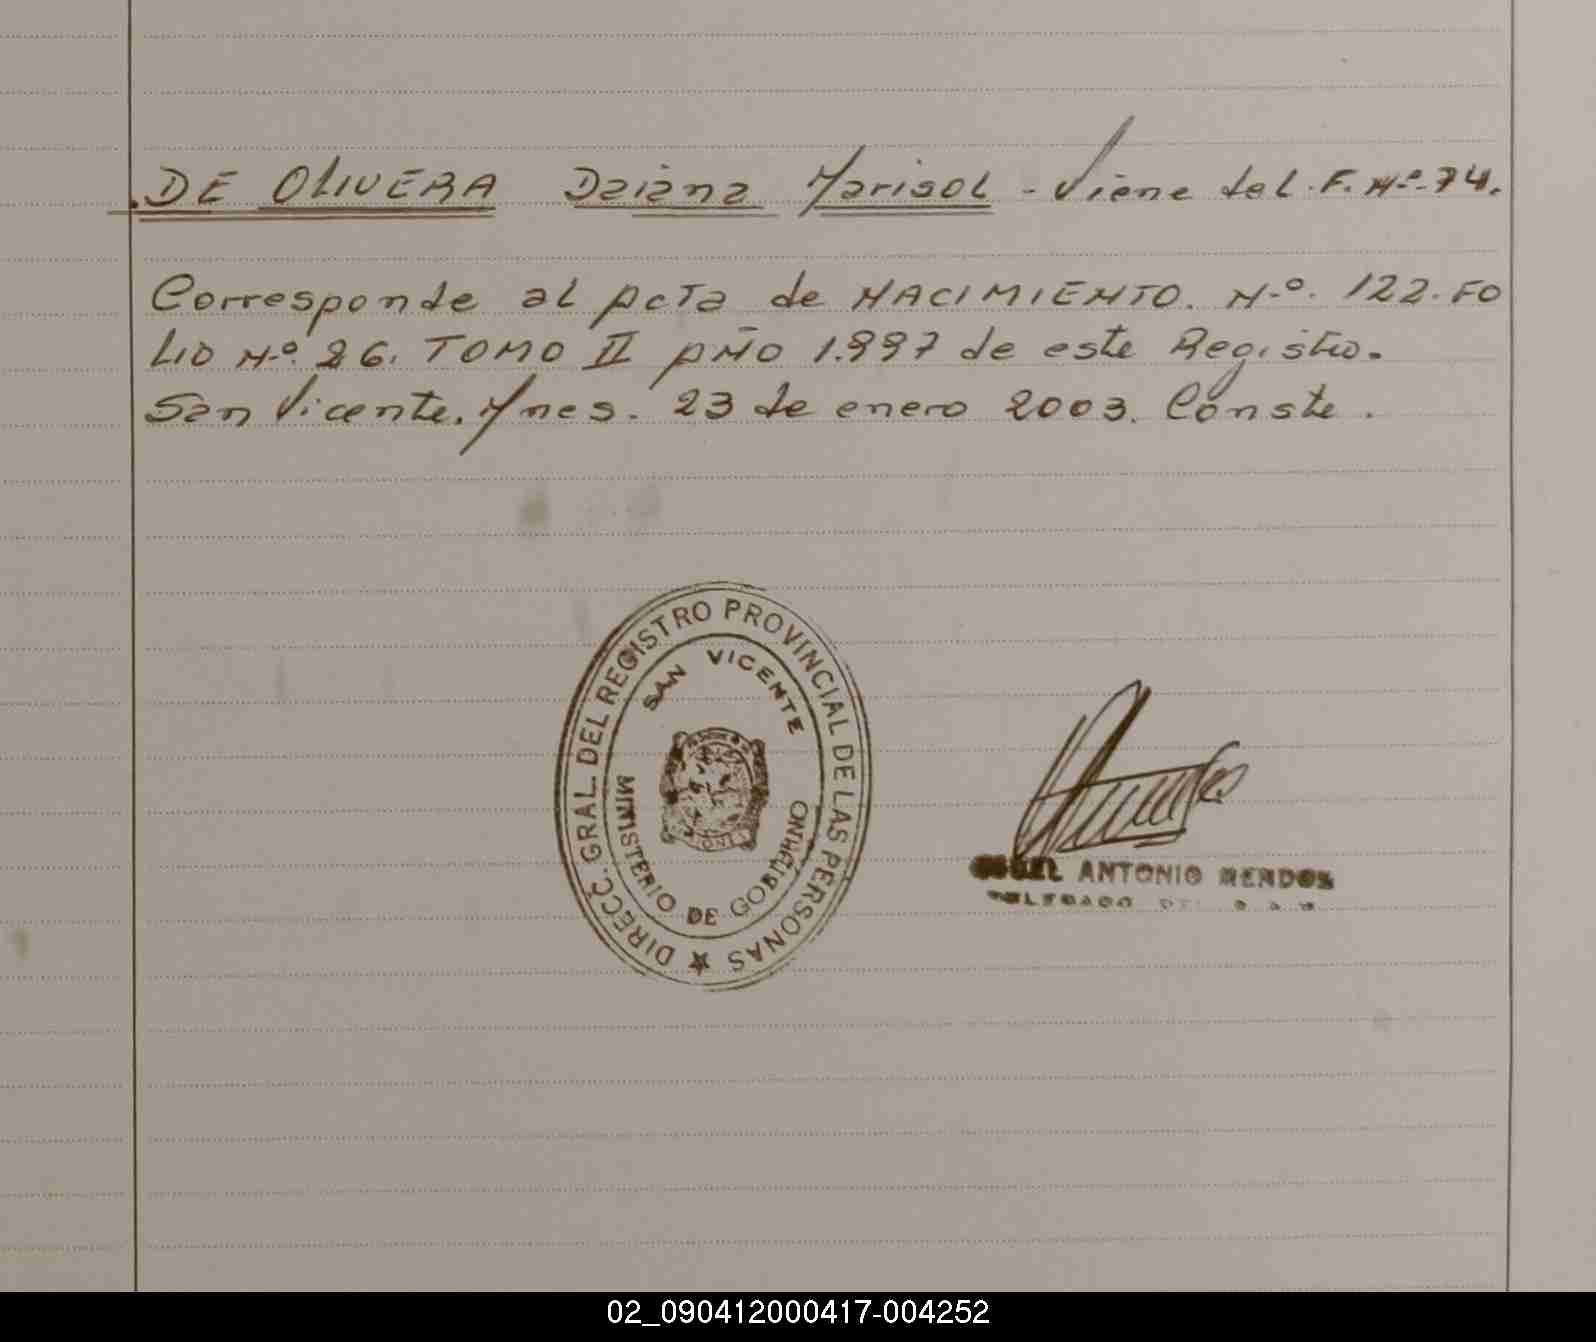 .DE OLIVERA Daiana Marisol - Viene del F. Nº. 74.
Corresponde al Acta de NACIMIENTO. Nº. 122. FO
LIO Nº. 26. TOMO II AÑO 1.997 de este Registro.
San Vicente. Mnes. 23 de enero 2003. Conste.
DIRECC. GRAL. DEL REGISTRO PROVINCIAL DE LAS PERSONAS
SAN VICENTE
MINISTERIO DE GOBIERNO
ANTONIO
02_090412000417-004252